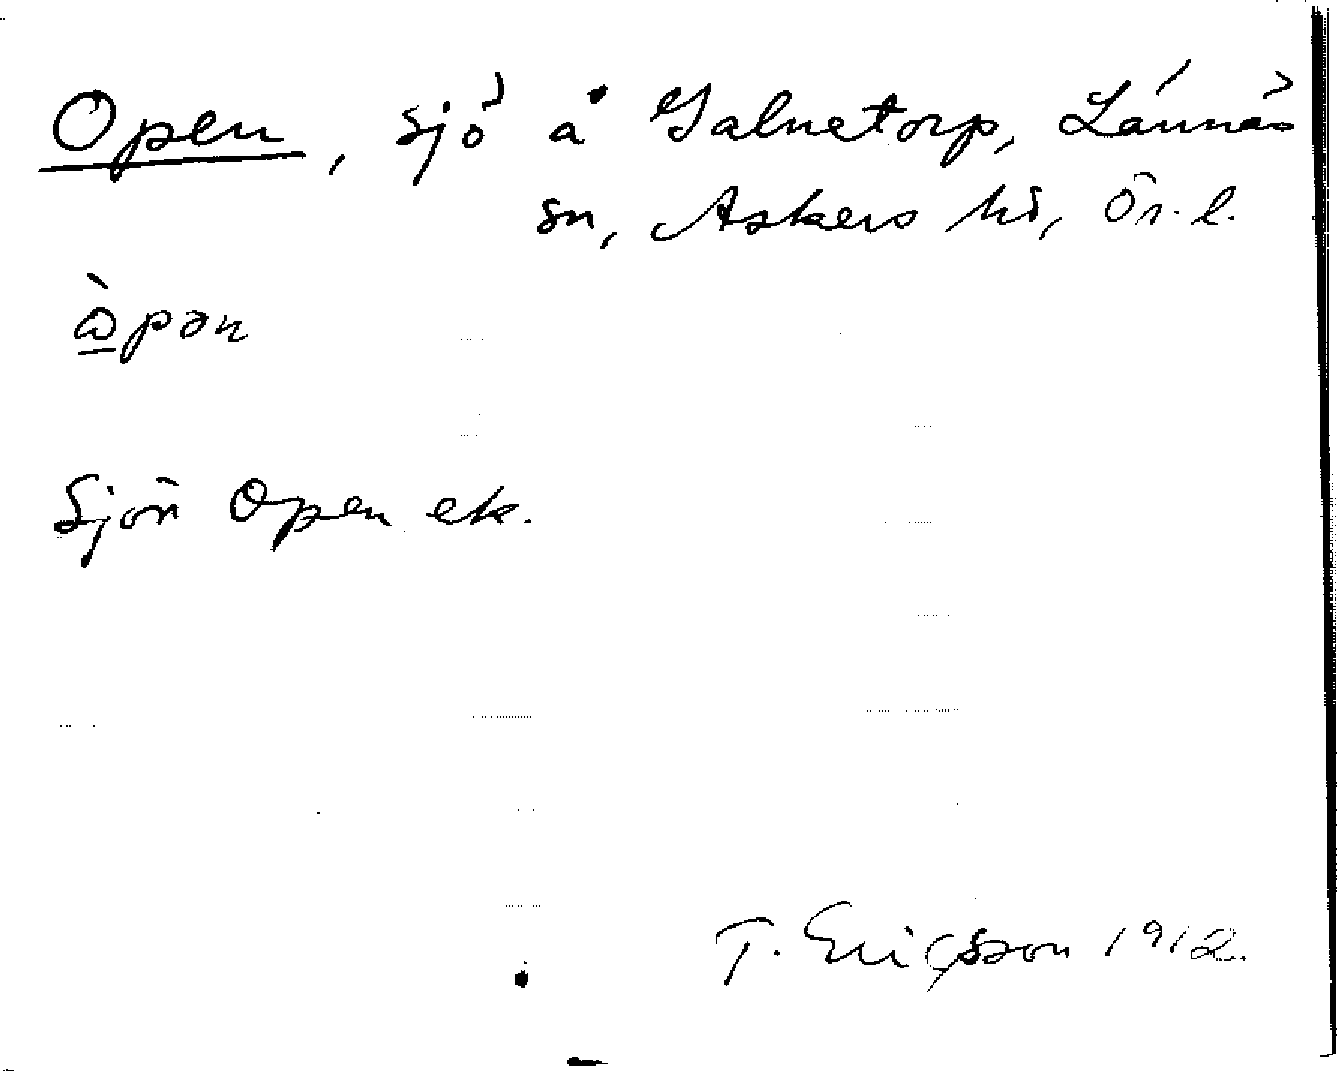 Open, sjö å Galnetorp, Lännäs
sn, Askers hd, Ör. l.
ò̲pən
Sjön Open ek.
T. Ericsson 1912.